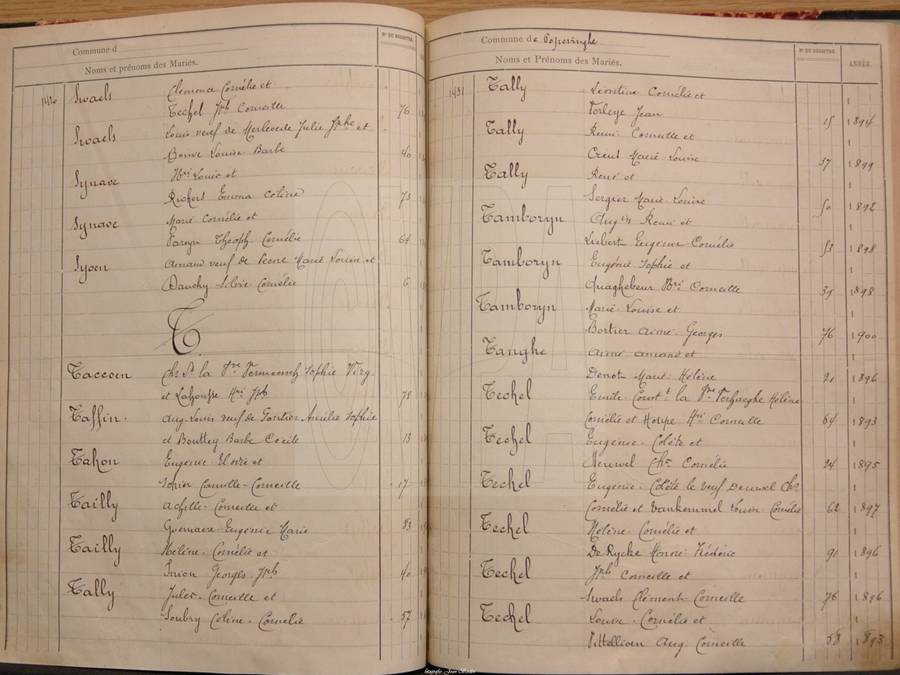 Commune d
N° DU REGISTRE.
Noms et prénoms des Mariés.
1420 Swaels Clemena Cornélie et
Techel Jph Corneille 76
Swaels Louis veuf de Merlevede Julie Jphe et
Bonne Louise Barbe 40
Synave Hri Louis et
Rickers Emma Colène 73
Synave Marie Cornélie et
Pareyn Théoph Cornélie 64
Syoen Amand veuf de Marie Louise et
Dauchy Silvie Cornélie 6
T.
Taccoen Chs Pl la Vve Sophie Virg.
et Lahousse Hri Jph 78
Taffin. Aug. Louis veuf de Gontier Amélie Sophie
et Bouttey Barbe Cécile 13
Tahon Eugenie Elodie et
Camille Corneille 17
Tailly Achille Corneille et
Guernaere Eugénie Marie 83
Tailly Hélène Cornélie et
Georges Jph 40
Tally Jules Corneille et
Soubry Céline Cornélie 57
Commune de Poperinghe
Noms et Prénoms des Mariés.
N° DU REGISTRE.
ANNÉE.
1431 Tally Léontine Cornélie et
Torleye Jean 15 1894
Tally Remi Corneille et
Creus Marie Louise 37 1899
Tally René et
Sergier Marie Louise 50 1892
Tamboryn Aug in Remi et
Liebert Eugénie Cornélie 53 1898
Tamboryn Eugénie Sophie et
Quaghebeur Hri Corneille 39 1898
Tamboryn Marie Louise et
Bortier Aimé Georges 76 1900
Tanghe Aimé Amand et
Denot Marie Hélène 21 1896
Techel Emile Const t la Vve Verhaeghe Hélène
Cornélie et Houpe Hri Corneille 64 1893
Techel Eugénie Colète et
Deuwel Chs Cornélie 24 1895
Techel Eugénie Colète le veuf Deuwel Chs
Cornélie et Vankemmel Louis Cornélie 62 1897
Techel Hélène Cornélie et
De Rycke Honoré Frédéric 91 1896
Techel Jph Corneille et
Swaels Clément Corneille 76 1896
Techel Louise Cornélie et
Vittellien Aug. Corneille 58 1893